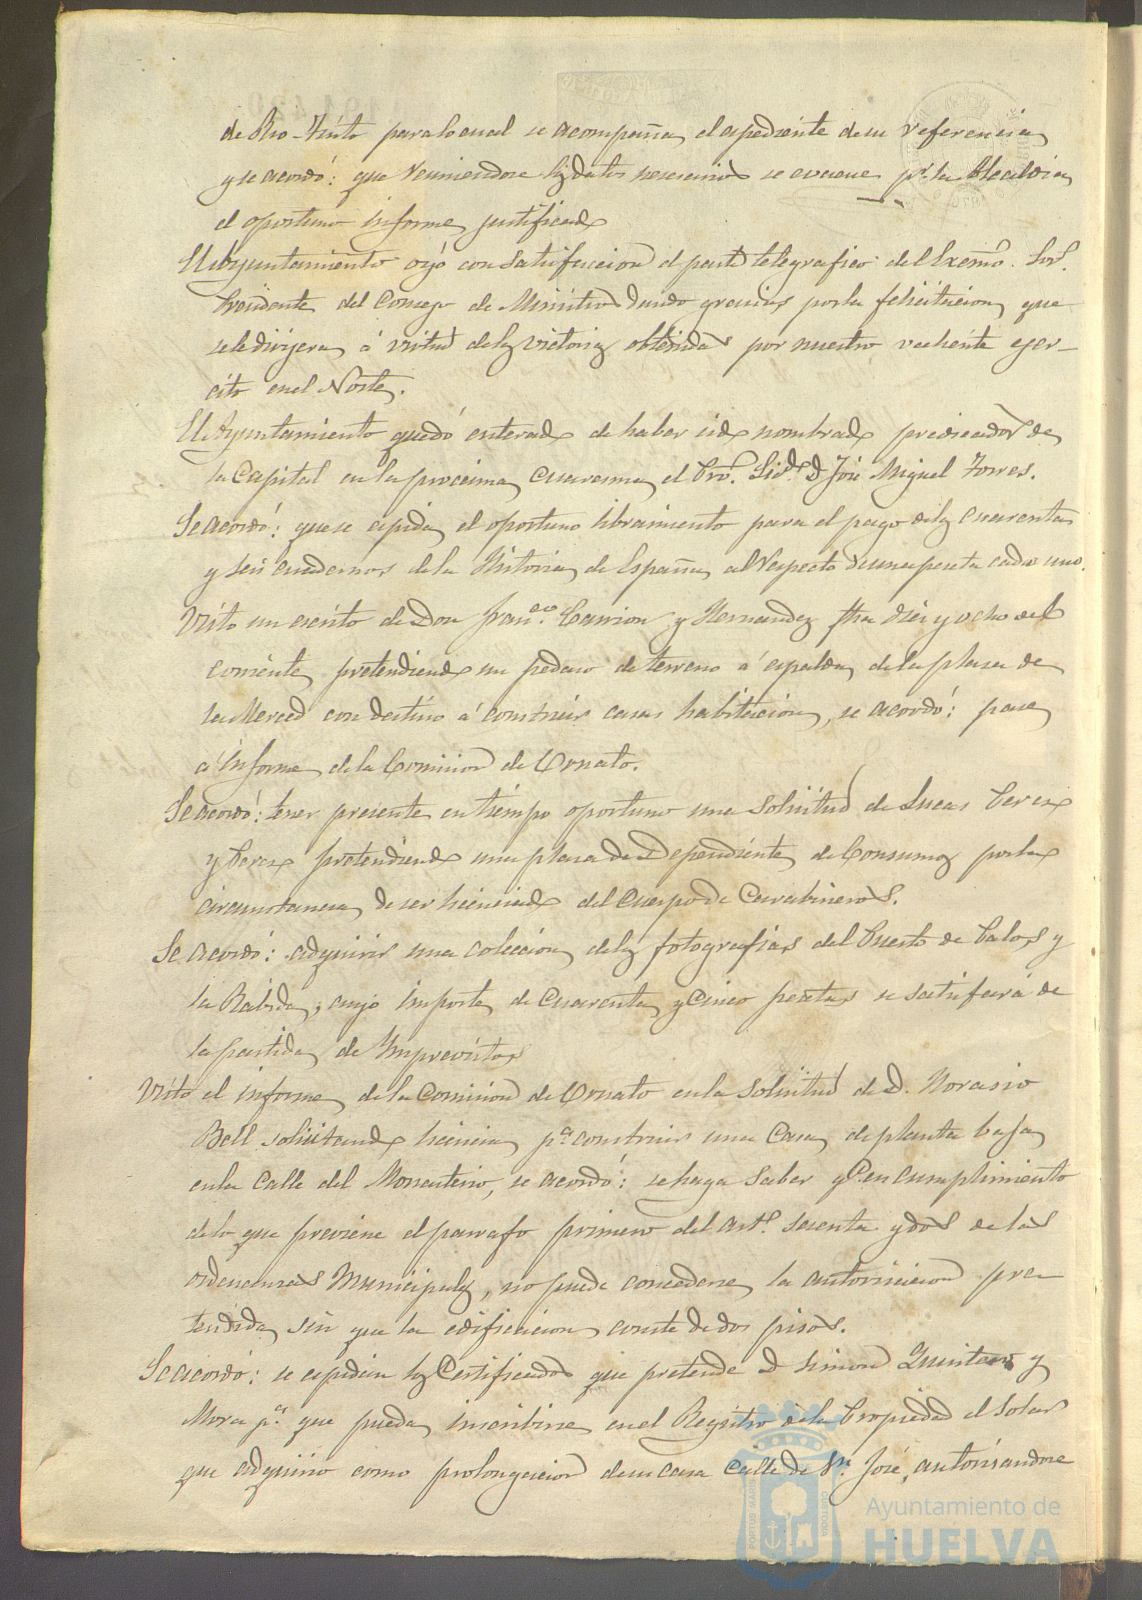 de Rio-Tinto para lo cual se acompaña el espediente de su referencia
y se acordó: que reuniendose los datos necesarios se evacue pr. la Alcaldia
el oportuno informe justificado
El Ayuntamiento oyó con satisfaccion el parte telegrafico del Excmo. Sor.
Presidente del Consejo de Ministros dando gracias por la felicitacion que
se le dirijera á virtud de las victorias obtenidas por nuestro valiente ejer-
cito en el Norte.
El Ayuntamiento quedó enterado de haber sido nombrado predicador de
la Capital en la procsima cuaresma el Pro. Licdo. D José Miguel Torres.
Se acordó: que se espida el oportuno libramiento para el pago de los cuarenta
y seis cuadernos de la Historia de España al respecto de una peseta cada uno.
Visto un escrito de Don Franco. Carrion y Hernandez fha diez y ocho del
corriente pretendiendo un pedaso de terreno á espalda de la plasa de
la Merced con destino á construir casas habitacion, se acordó: pase
á informe de la Comision de Ornato.
Se acordó: tener presente en tiempo oportuno una solicitud de Lucas Perez
y Perez pretendiendo una plasa de Dependiente de Consumos por la
circunstancia de ser licenciado del Cuerpo de Carabineros.
Se acordó: adquirir una coleccion de las fotografias del Puerto de Palos y
la Rábida, cuyo importe de cuarenta y cinco pesetas se satisfará de
la partida de Imprevistos
Visto el informe de la Comision de Ornato en la solicitud de D. Horasio
Bell solicitando licencia pa. construir una Casa de planta baja
en la Calle del Monasterio, se acordó: se haga saber q. en cumplimiento
de lo que previene el parrafo primero del artº. sesenta y dos de las
ordenansas Municipales, no puede concederse la autorisacion pre
tendida sin que la edificacion conste de dos pisos.
Se acordó: se espidan los Certificados que pretende D Simon Quintero y
Mora pa. que pueda inscribirse en el Registro de la Propiedad el Solar
que adquirió como prolongacion de su casa Calle de Sn. José, autorisandose
PORTUS MARIS
CUSTODIA
Ayuntamiento de
HUELVA